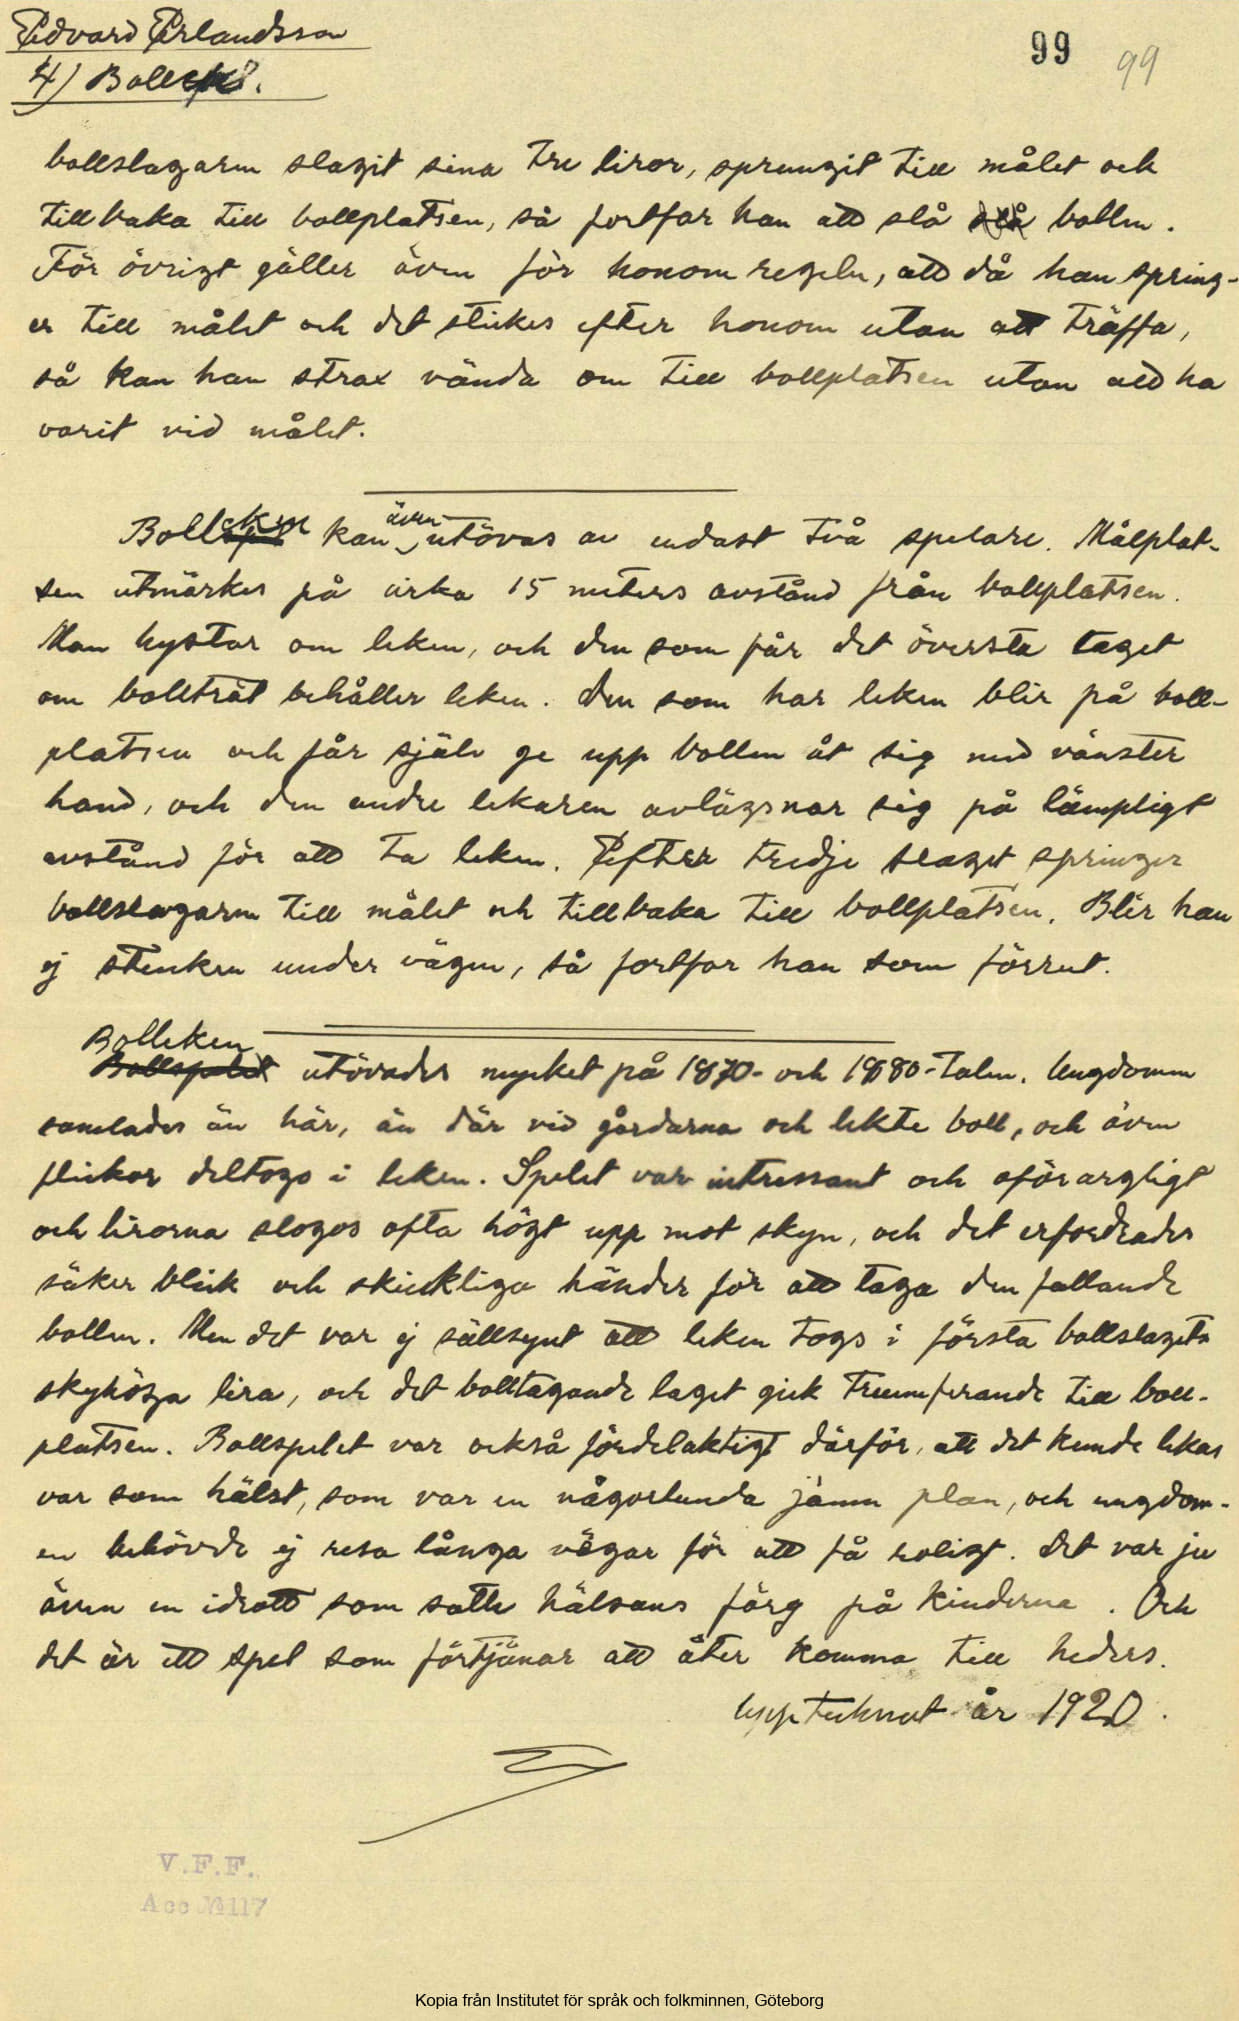 Edvard Erlandsson
99 99
4) Bollek.
bollslagaren slagit sina tre liror, sprungit till målet och
tillbaka till bollplatsen, så fortfar han att slå slå bollen.
För övrigt gäller även för honom regeln, att då han spring-
er till målet och det stickes efter honom utan att träffa,
så kan han strax vända om till bollplatsen utan att ha
varit vid målet.
Bolleken kan även utövas av endast två spelare. Målplat-
sen utmärkes på cirka 15 meters avstånd från bollplatsen.
Man hystar om leken, och den som får det översta taget
om bollträt behåller leken. Den som har leken blir på boll-
platsen och får själv ge upp bollen åt sig med vänster
hand, och den andre lekaren avlägsnar sig på lämpligt
avstånd för att ta leken. Efter tredje slaget springer
bollslagaren till målet och tillbaka till bollplatsen. Blir han
ej stucken under vägen, så fortfar han som förrut.
Bolleken
Bollspelet utövades mycket på 1870- och 1880-talen. Ungdomen
samlades än här, än där vid gårdarna och lekte boll, och även
flickor deltogo i leken. Spelet var intressant och oförargligt
och lirorna slogos ofta högt upp mot skyn, och det erfordrades
säker blick och skickliga händer för att taga den fallande
bollen. Men det var ej sällsynt att leken togs i första bollslagets
skyhöga lira, och det bolltagande laget gick triumferande till boll-
platsen. Bollspelet var också fördelaktigt därför, att det kunde lekas
var som hälst, som var en någorlunda jämn plan, och ungdom-
en behövde ej resa långa vägar för att få roligt. Det var ju
även en idrott som satte hälsans färg på kinderna. Och
det är ett spel som förtjänar att åter komma till heders.
Upptecknat år 1920.
V.F.F.
Acc № 117
Kopia från Institutet för språk och folkminnen, Göteborg